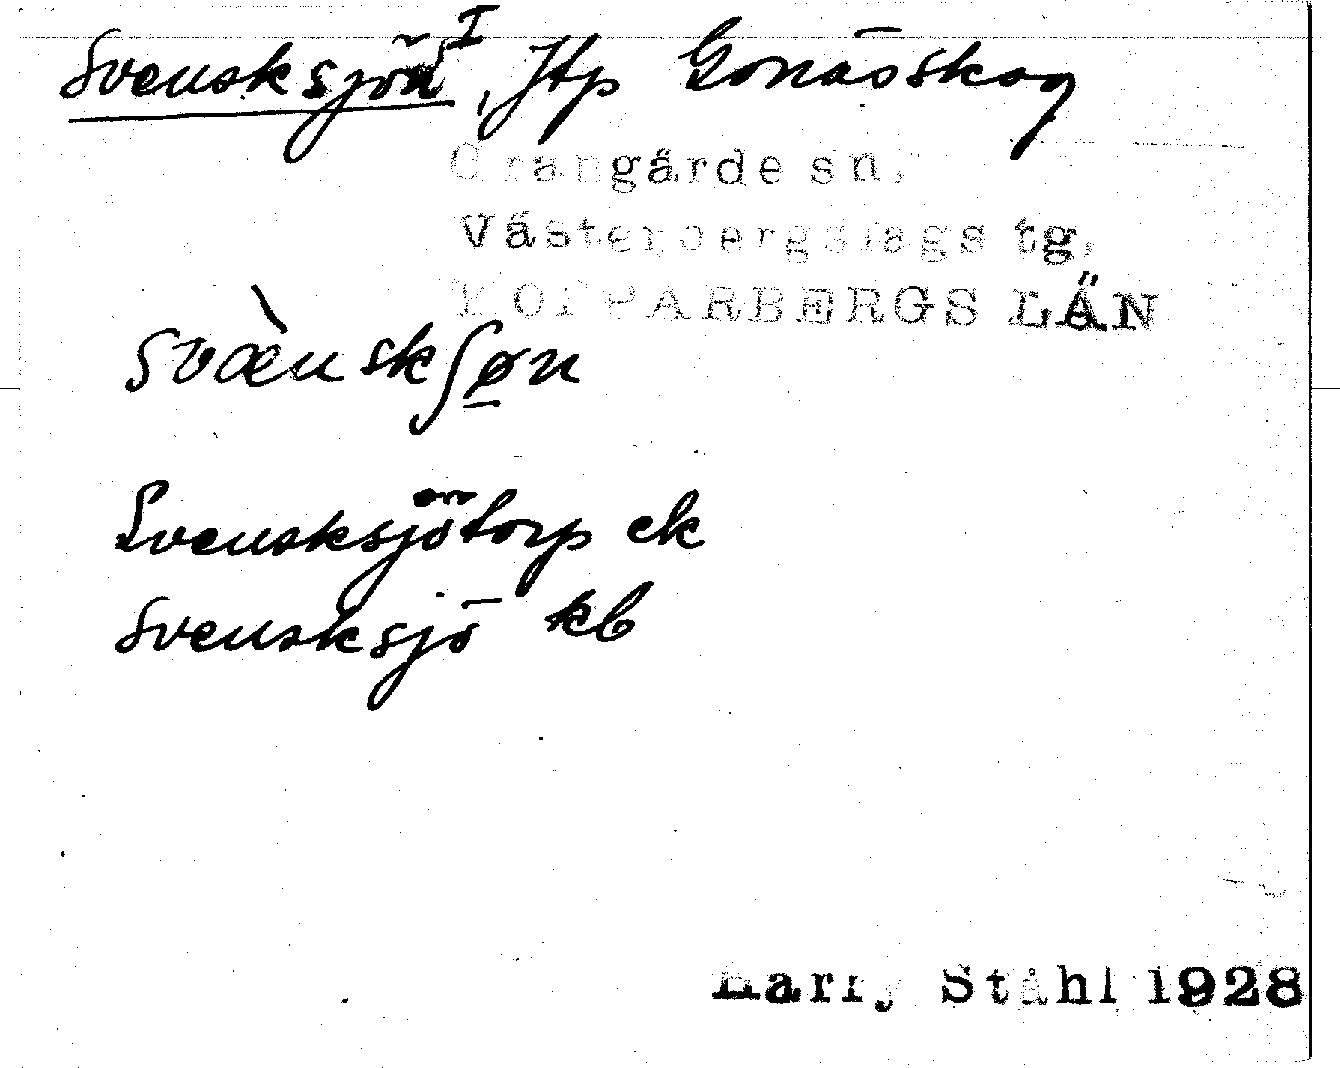 Svensksjön I, Jtp Gonässkog
Grangärde sn,
Västerbergslags tg,
KOPPARBERGS LÄN
svæ̀nskʃøn
Svensksjötorp ek
Svensksjö kb
Harry Ståhl 1928